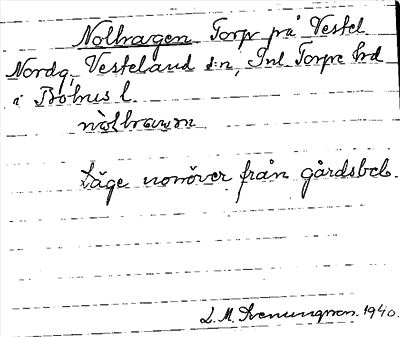 Nolhagen Torp på Vestel
Nordg, Vesteland s:n, Inl Torpe hrd
i Bohus l.
Läge norröver från gårdsbeb.
L. M. Svenungsson. 1940.